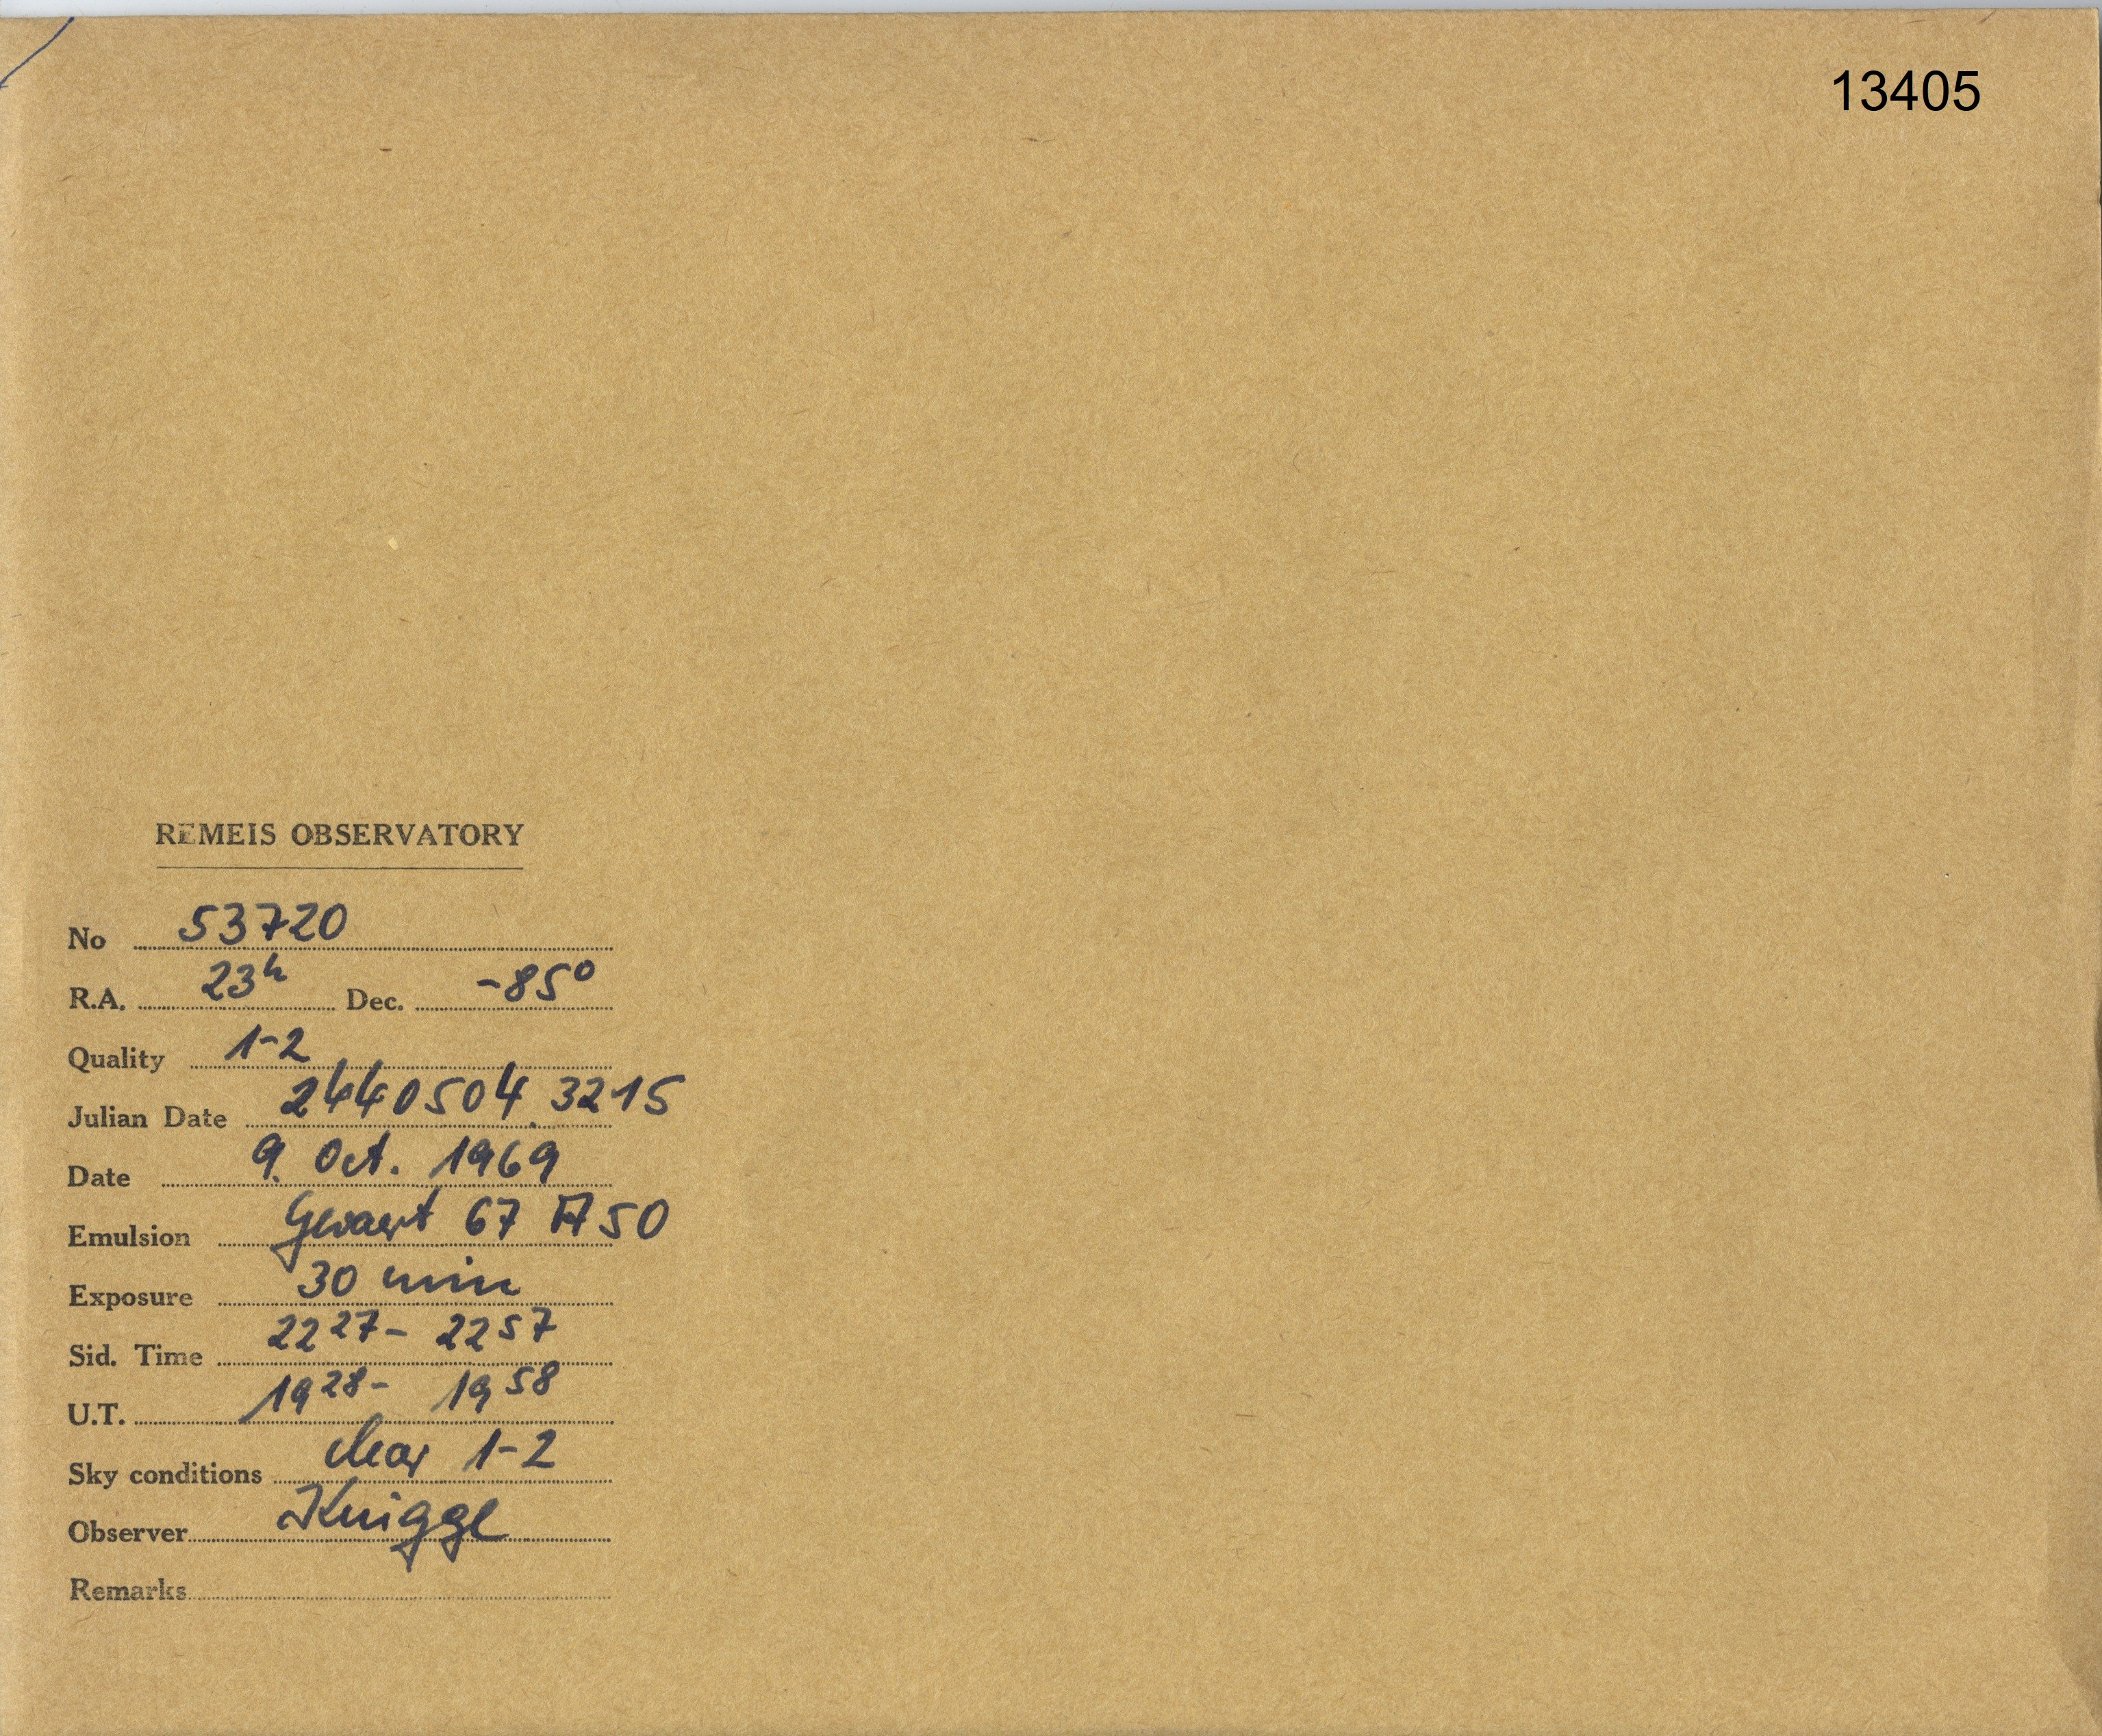 13405
REMEIS OBSERVATORY
No 53720
R.A. 23h Dec. -85°
Quality 1-2
Julian Date 2440504.3215
Date 9. Oct. 1969
Emulsion Gevaert 67 A 50
Exposure 30 min
Sid. Time 22 27 - 22 57
U.T. 19 28 - 19 58
Sky conditions clear 1-2
Observer Knigge
Remarks